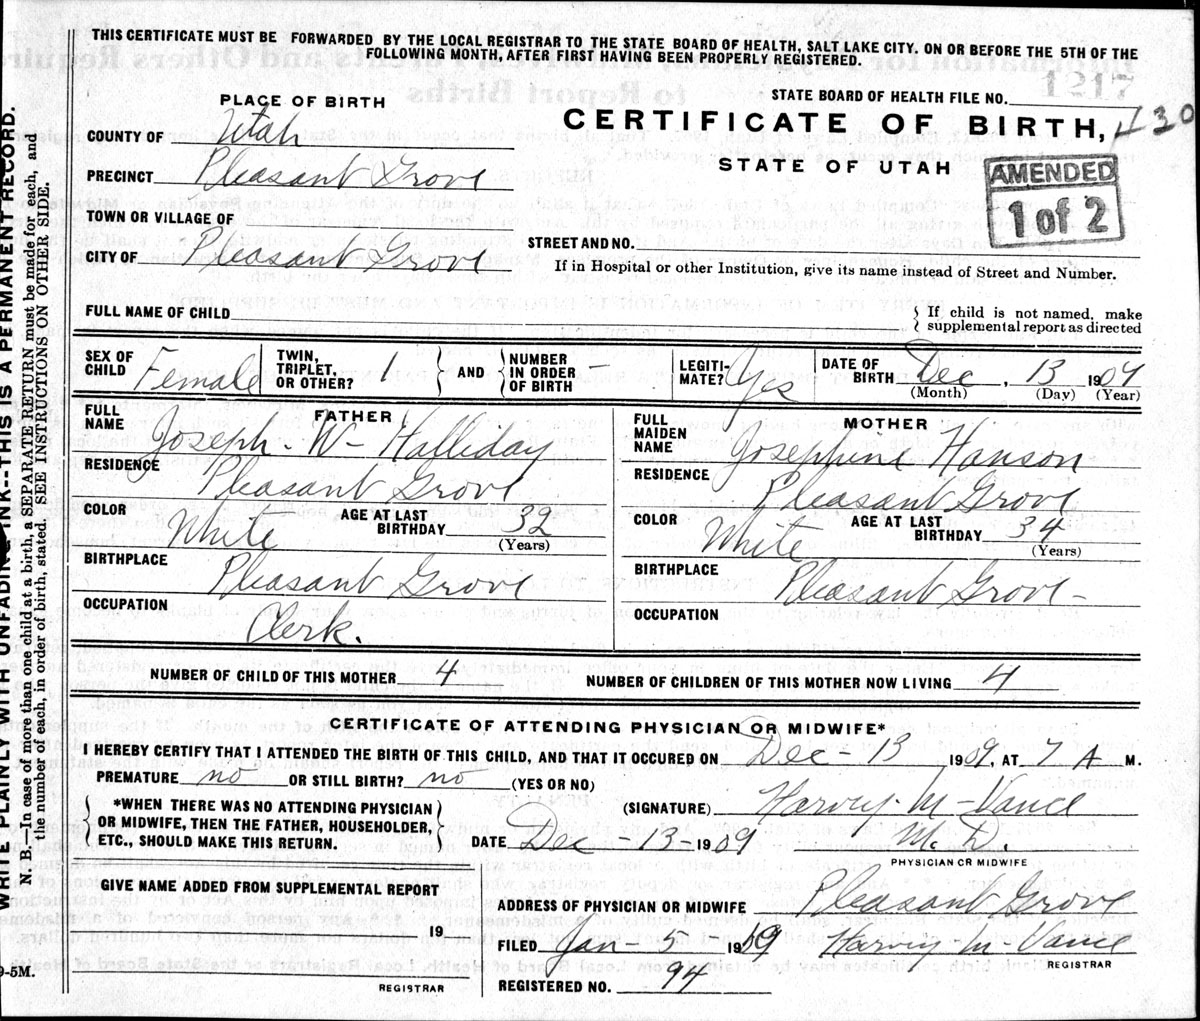 THIS CERTIFICATE MUST BE FORWARDED BY THE LOCAL REGISTRAR TO THE STATE BOARD OF HEALTH, SALT LAKE CITY. ON OR BEFORE THE 5TH OF THE
FOLLOWING MONTH, AFTER FIRST HAVING BEEN PROPERLY REGISTERED.
STATE BOARD OF HEALTH FILE NO.
430
PLACE OF BIRTH
CERTIFICATE OF BIRTH,
COUNTY OF Utah
STATE OF UTAH
AMENDED
1 of 2
PRECINCT Pleasant Grove
TOWN OR VILLAGE OF
STREET AND NO.
CITY OF Pleasant Grove
If in Hospital or other Institution, give its name instead of Street and Number.
FULL NAME OF CHILD
If child is not named, make
supplemental report as directed
SEX OF CHILD Female TWIN, TRIPLET, OR OTHER? 1 AND NUMBER IN ORDER OF BIRTH – LEGITI-MATE? Yes DATE OF BIRTH Dec. 13 1909
(Month) (Day) (Year)
FATHER
FULL NAME Joseph. W- Halliday
RESIDENCE Pleasant Grove
COLOR White AGE AT LAST BIRTHDAY 32
(Years)
BIRTHPLACE Pleasant Grove
OCCUPATION Clerk.
MOTHER
FULL MAIDEN NAME Josephine Hanson
RESIDENCE Pleasant Grove
COLOR White AGE AT LAST BIRTHDAY 34
(Years)
BIRTHPLACE Pleasant Grove-
OCCUPATION
NUMBER OF CHILD OF THIS MOTHER 4 NUMBER OF CHILDREN OF THIS MOTHER NOW LIVING 4
CERTIFICATE OF ATTENDING PHYSICIAN OR MIDWIFE*
I HEREBY CERTIFY THAT I ATTENDED THE BIRTH OF THIS CHILD, AND THAT IT OCCURED ON Dec-13 1909, AT 7 A M.
PREMATURE no OR STILL BIRTH? no (YES OR NO)
*WHEN THERE WAS NO ATTENDING PHYSICIAN
OR MIDWIFE, THEN THE FATHER, HOUSEHOLDER,
ETC., SHOULD MAKE THIS RETURN.
(SIGNATURE) Harvey. M-Vance
DATE Dec-13-1909 M.D.
PHYSICIAN OR MIDWIFE
GIVE NAME ADDED FROM SUPPLEMENTAL REPORT
19
REGISTRAR
ADDRESS OF PHYSICIAN OR MIDWIFE Pleasant Grove
FILED Jan-5 19 Harvey M Vance
REGISTRAR
REGISTERED NO. 94
9-5M.
WRITE PLAINLY WITH UNFADING INK--THIS IS A PERMANENT RECORD.
N. B.—In case of more than one child at a birth, a SEPARATE RETURN must be made for each, and
the number of each, in order of birth, stated. SEE INSTRUCTIONS ON OTHER SIDE.